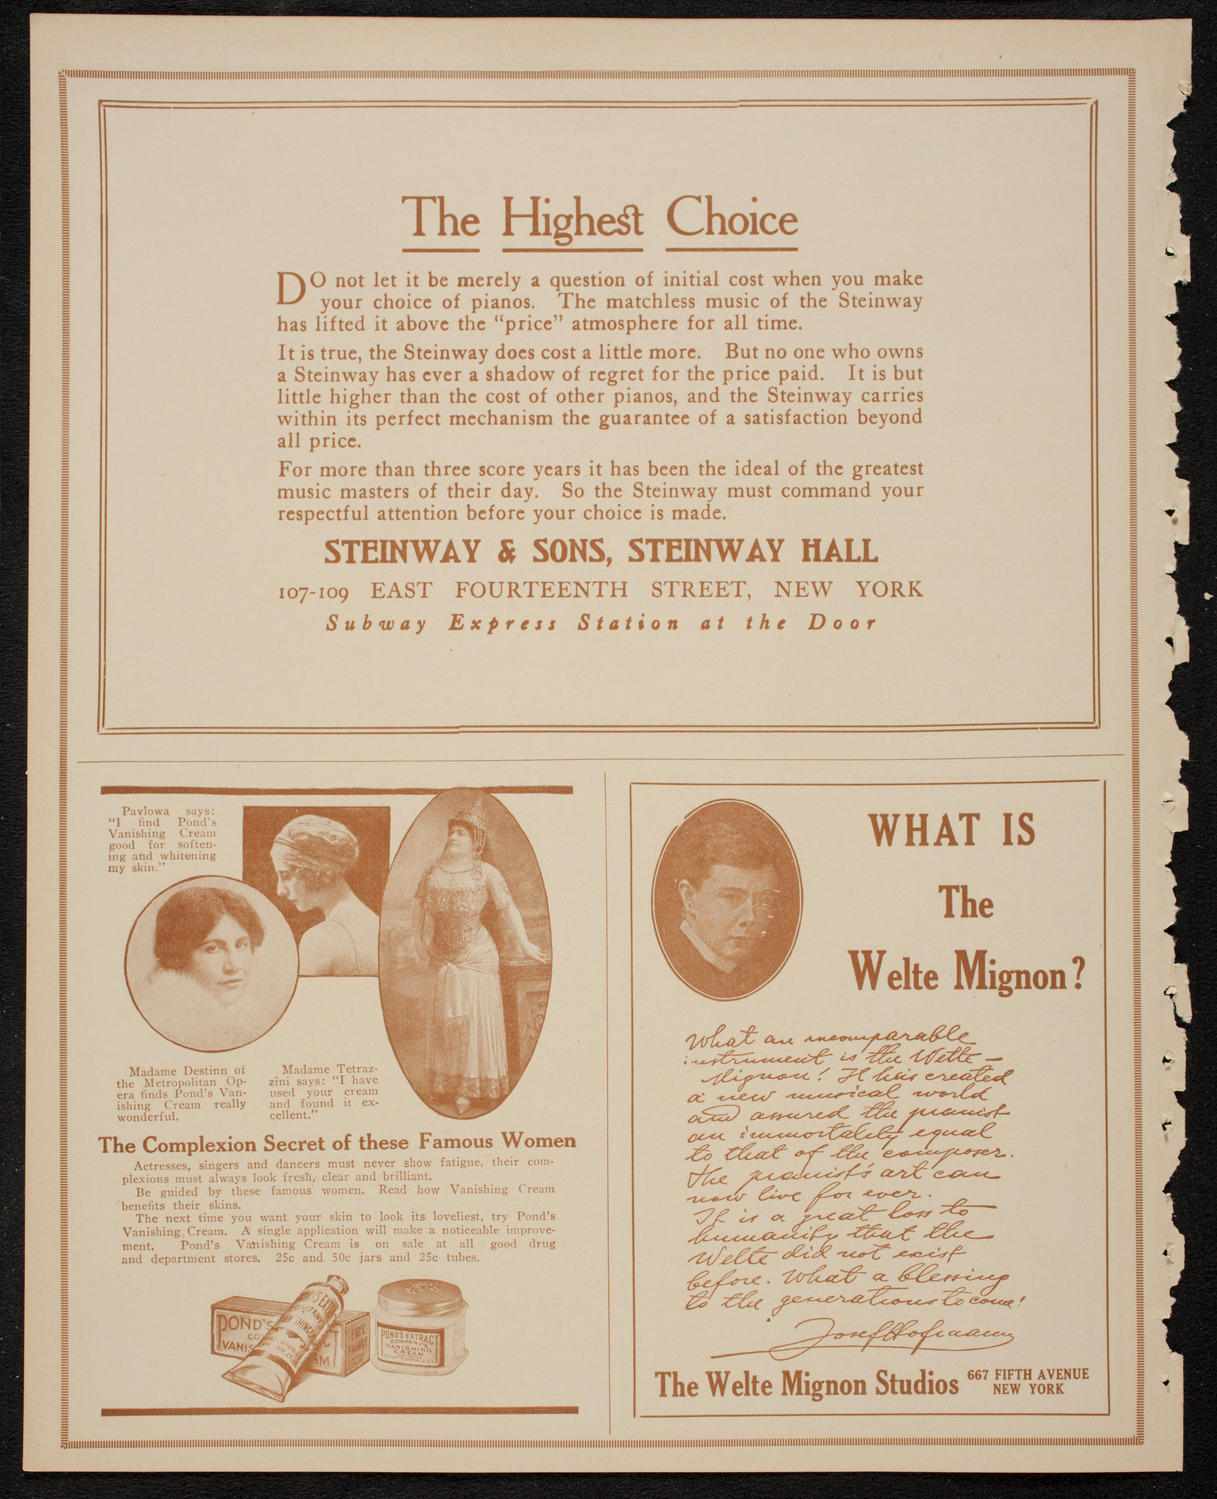 The Highest Choice
DO not let it be merely a question of initial cost when you make
your choice of pianos. The matchless music of the Steinway
has lifted it above the “price” atmosphere for all time.
It is true, the Steinway does cost a little more. But no one who owns
a Steinway has ever a shadow of regret for the price paid. It is but
little higher than the cost of other pianos, and the Steinway carries
within its perfect mechanism the guarantee of a satisfaction beyond
all price.
For more than three score years it has been the ideal of the greatest
music masters of their day. So the Steinway must command your
respectful attention before your choice is made.
STEINWAY & SONS, STEINWAY HALL
107-109 EAST FOURTEENTH STREET, NEW YORK
Subway Express Station at the Door
Pavlowa says:
“I find Pond's
Vanishing Cream
good for soften-
ing and whitening
my skin.”
Madame Destinn of
the Metropolitan Op-
era finds Pond's Van-
ishing Cream really
wonderful.
Madame Tetraz-
zini says: “I have
used your cream
and found it ex-
cellent.”
The Complexion Secret of these Famous Women
Actresses, singers and dancers must never show fatigue, their com-
plexions must always look fresh, clear and brilliant.
Be guided by these famous women. Read how Vanishing Cream
benefits their skins.
The next time you want your skin to look its loveliest, try Pond's
Vanishing Cream. A single application will make a noticeable improve-
ment. Pond's Vanishing Cream is on sale at all good drug
and department stores. 25c and 50c jars and 25c tubes.
POND'S
VANIS
POND'S EXTRACT
COMPANY'S
VANISHING
CREAM
WHAT IS
The
Welte Mignon?
What an incomparable
instrument is the Welte-
Mignon! It has created
a new musical world
and assured the pianist
an immortality equal
to that of the composer.
The pianist's art can
now live for ever.
It is a great loss to
humanity that the
Welte did not exist
before. What a blessing
to the generations to come!
Josef Hofmann
The Welte Mignon Studios 667 FIFTH AVENUE
NEW YORK